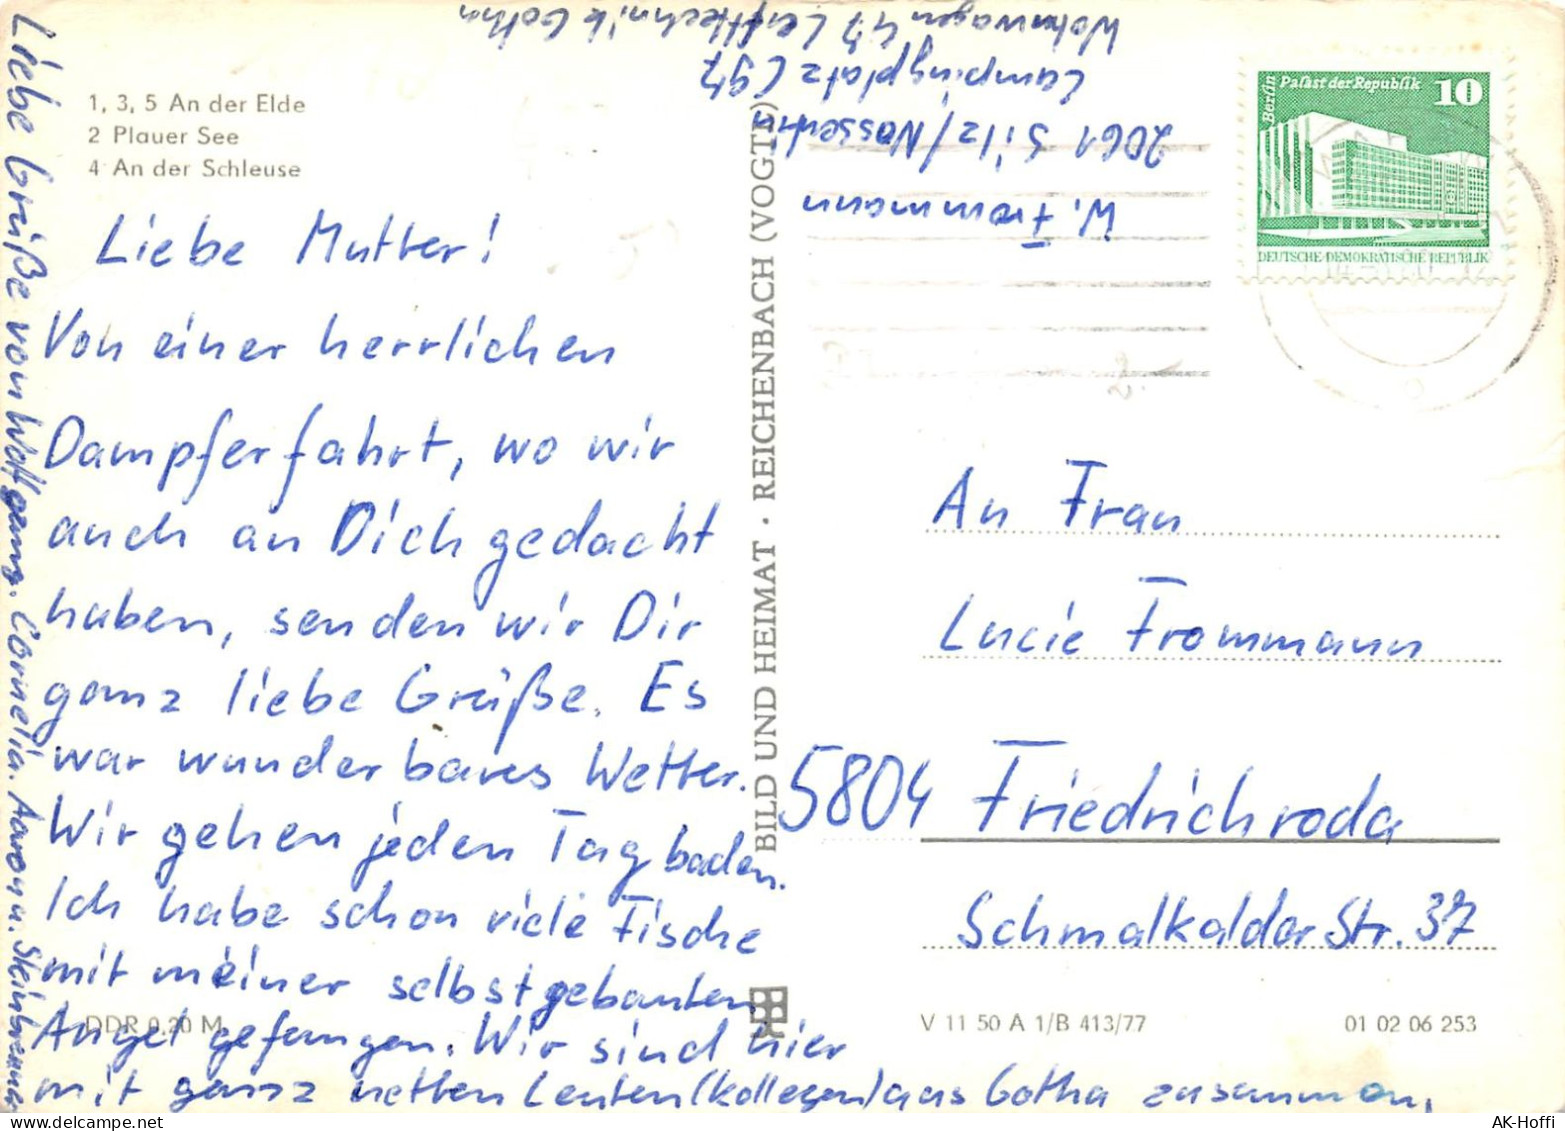 1, 3, 5 An der Elde
2 Plauer See
4 An der Schleuse
Liebe Mutter!
Von einer herrlichen
Dampferfahrt, wo wir
auch an Dich gedacht
haben, senden wir Dir
ganz liebe Grüße. Es
war wunderbares Wetter.
Wir gehen jeden Tag baden.
Ich habe schon viele Fische
mit meiner selbstgebauten
Angel gefangen. Wir sind hier
mit ganz netten Leuten (Kollegen) aus Gotha zusammen.
Liebe Grüße von Wolfgang. Cornelia. Aaron u.
DDR 0.20 M
BILD UND HEIMAT · REICHENBACH (VOGTL)
W. Frommann
2061 Silz/Nossentin
Campingplatz C97
Wohnwagen 47 Lufttechnik Gotha
Berlin
Palast der Republik
10
DEUTSCHE DEMOKRATISCHE REPUBLIK
An Frau
Lucie Frommann
5804 Friedrichroda
Schmalkalder Str. 37
V 11 50 A 1/B 413/77
01 02 06 253
AK-Hoffi